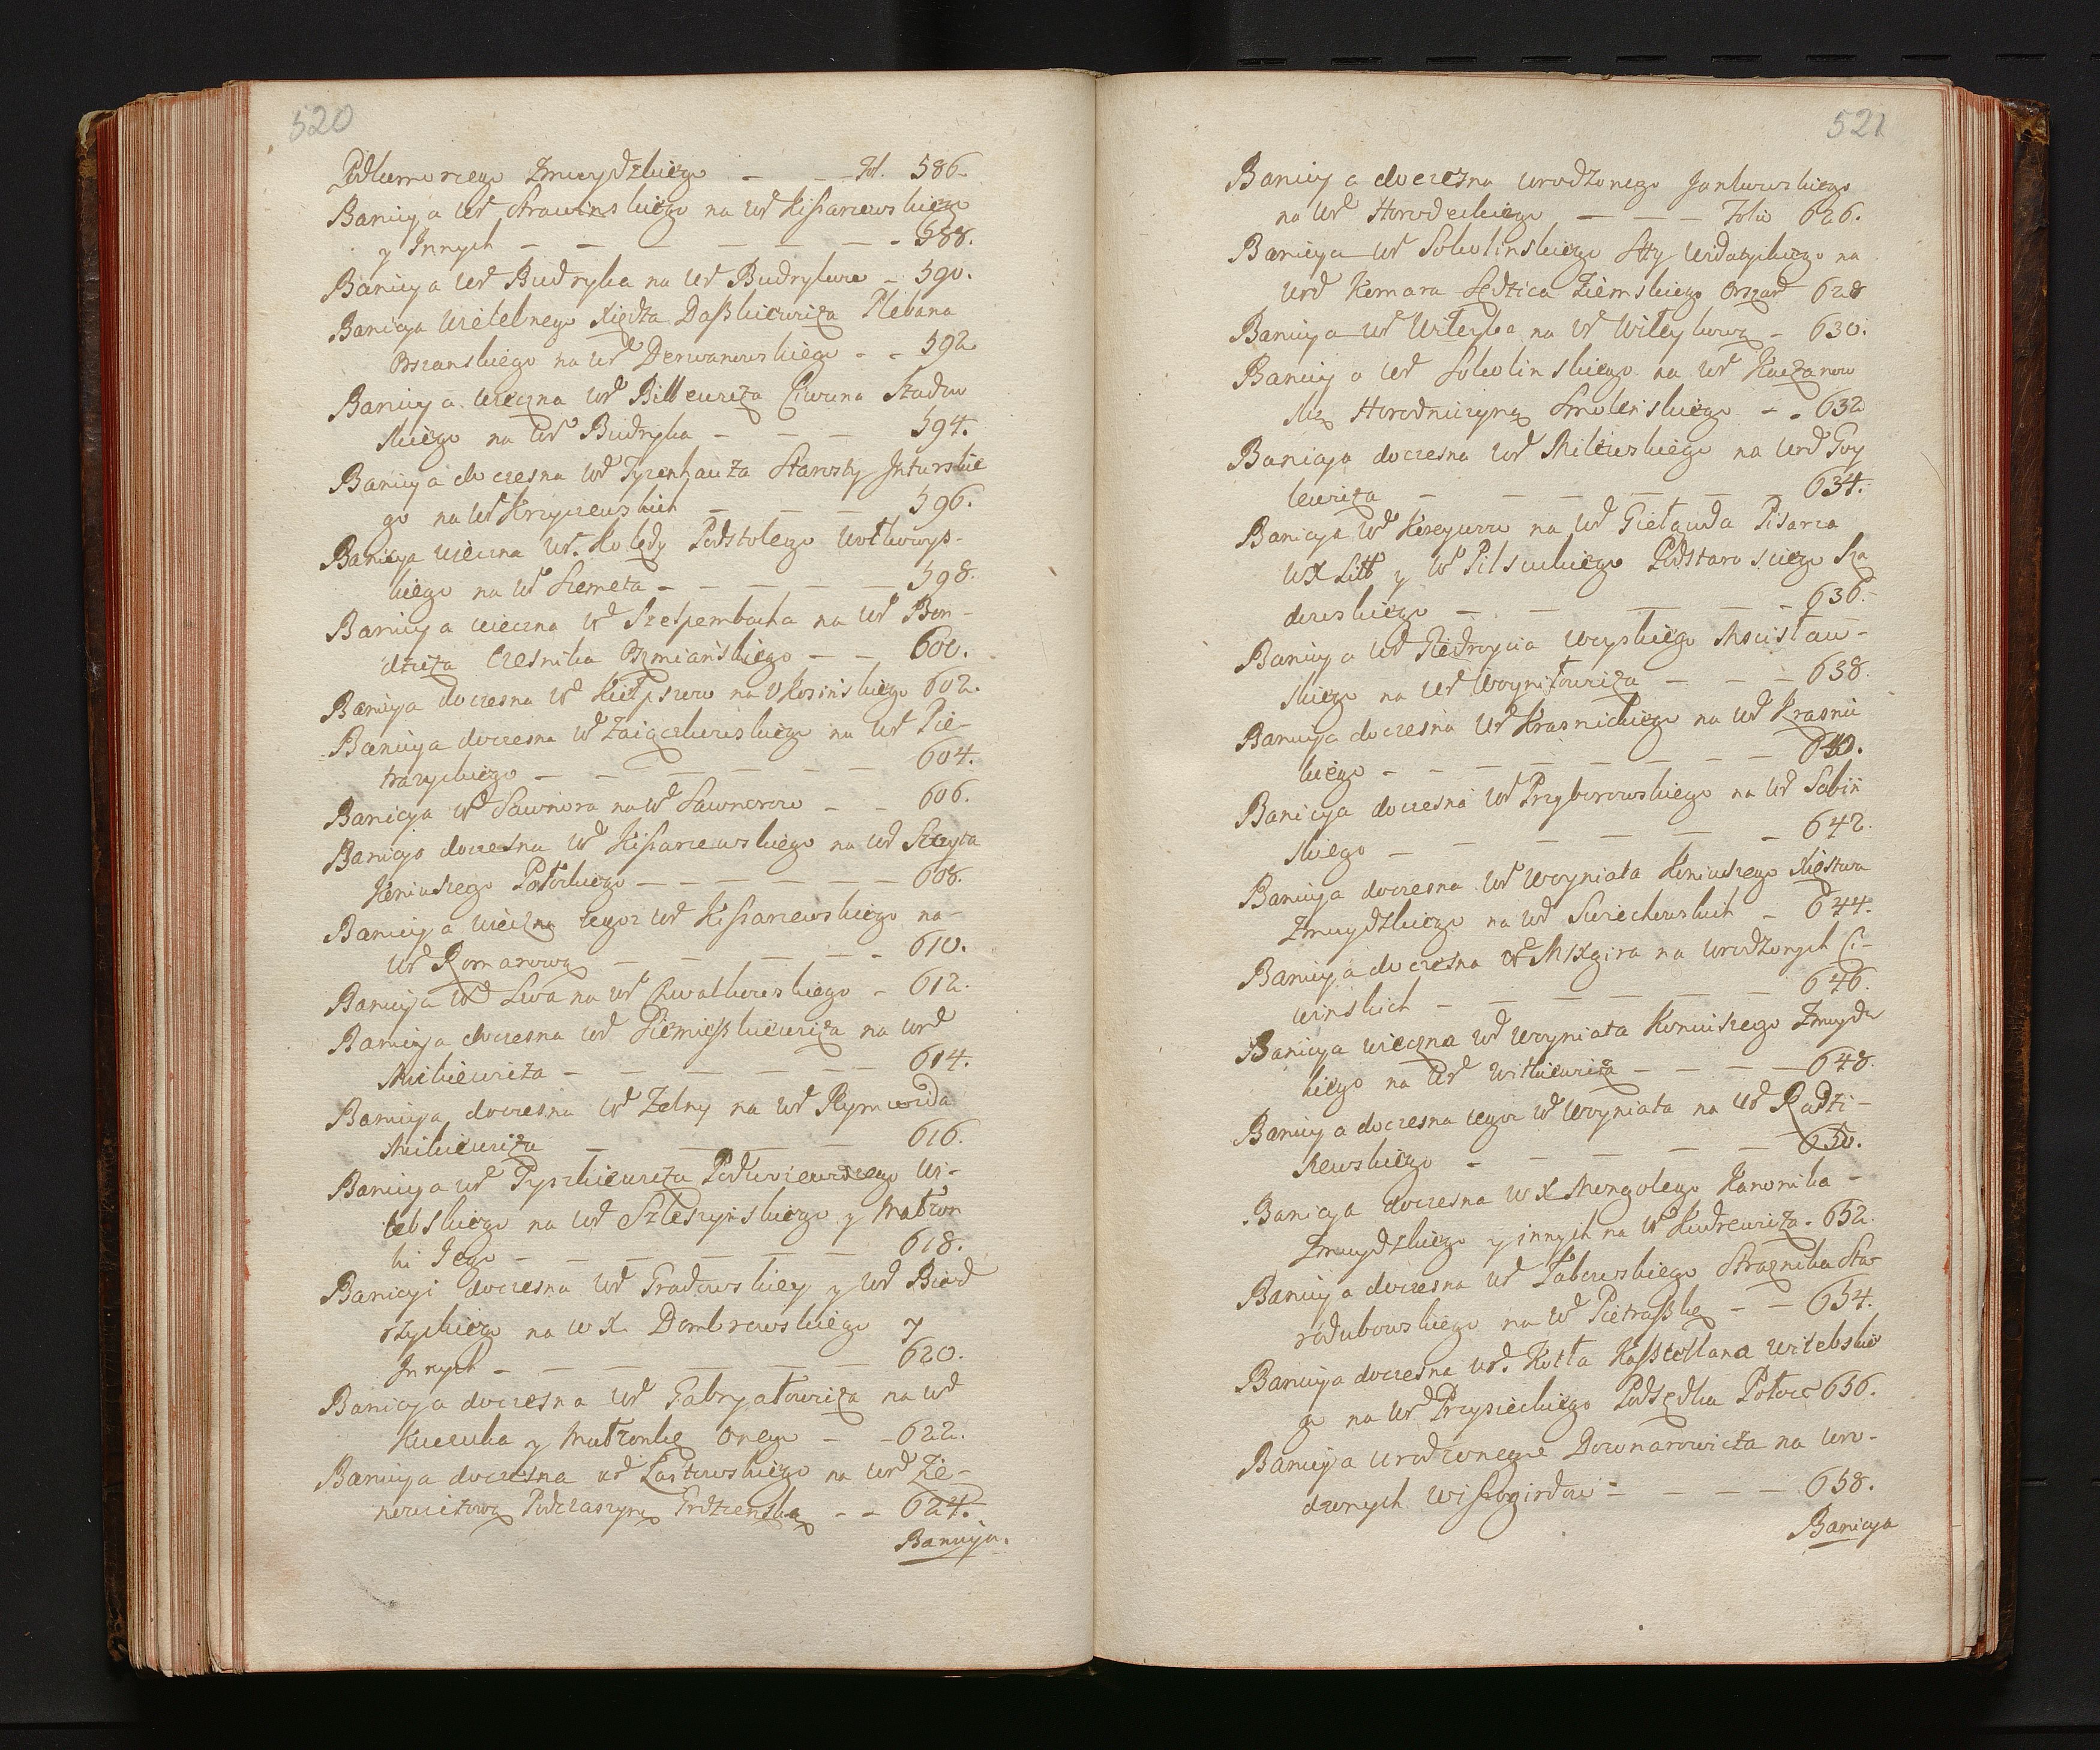 520
Podkomorzego Zmuydzkiego — — Fol. 586.
Banicya Ur Strawinskiego na Ur Kiszarzewskiego
y Innych — — — — — — 588.
Banicya Ur Budryka na Ur Budrykow — 590.
Banicya Wielebnego Xiędza Daszkiewicza Plebana
Orszanskiego na Ur Derwanowskiego — — 592
Banicya wieczna Ur Billewicza Ciwuna Szadow
skiego na Ur Budryka — — — 594.
Banicya doczesna Ur Tyzenhauza Starosty Inturskie
go na Ur Krzyczewskich — — — 596.
Banicya wieczna Ur. Kolędy Podstolego Wołkowys-
kiego na Ur Szemeta — — — — — 598.
Banicya wieczna Ur Szespembacha na Ur Bon-
dziża Czesnika Oszmianskiego — — 600.
Banicya doczesna Ur Kiełpszow na U Kosinskiego 602.
Banicya doczesna Ur Zaiączkowskiego na Ur Pie-
traszyckiego — — — — — — 604.
Banicya Ur Sawnora na Ur Sawnorow — — 606.
Banicya doczesna Ur Kiszarzewskiego na Ur Szczyta
Koniuszego Połockiego — — — — — — 608.
Banicya wieczna tegoz Ur Kiszarzewskiego na-
Ur Romanową — — — — — — 610.
Banicya Ur Lwa na Ur Chwalkowskiego — 612.
Banicya doczesna Ur Siemiaszkiewicza na Urd
Mickiewicza — — — — — — 614.
Banicya doczesna Ur Zelny na Ur Rymwida
Mickiewicza — — — — 616.
Banicya Ur Tyszkiewicza Podwoiewodzego Wi-
tebskiego na Ur Szleszynskiego y Małżon
ki Iego — — — — — — 618.
Banicyi doczesna Ur Gradowskiey y Ur Biard
rzyckiego na W X. Dombrowskiego y
Innych — — — — — — 620.
Banicya doczesna Ur Gabryałowicza na Ur
Kuczuka y Małżonkę onego — — 622.
Banicya doczesna Ur Łastowskiego na Urd Zie-
nowiczową Podczaszynę Grodzieńską — — 624.
Banicya.
521
Banicya doczesna Urodzonego Jankowskiego
na Urd Horodeckiego — — — Folio 626.
Banicya Ur Sokolinskiego Stty Uswiatskiego na
Urd Komara Sędzica Ziemskiego Orszań 628
Banicya Ur Witeyka na Ur Witeykową — 630.
Banicya Ur Sokolinskiego na Ur Kaczanow
ską Horodniczynę Smolenskiego — — 632
Banicya doczesna Ur Milewskiego na Urd Goy
lewicza — — — — — 634.
Banicya Ur Kozeyurow na Ur Giełguda Pisarza
W X Litt y Ur Pilsudskiego Podstaroscięgo Sza
dowskiego — — — — — 636.
Banicya Ur Giedroycia Woyskiego Mscisław-
skiego na Ur Woyniłowicza — — — 638.
Banicya doczesna Ur Krasnickiego na Ur Krasnic
kiego — — — — — — — 640.
Banicya doczesna Ur Przyborowskiego na Ur Sobin
skiego — — — — — 642.
Banicya doczesna Ur Woyniata Koniuszego Xięstwa
Zmuydzkiego na Ur Swiechowskich — 644.
Banicya doczesna Ur Mozgira na Urodzonych Ci-
winskich — — — — — — 646.
Banicya wieczna Ur Woyniata Koniuszego Zmuydz
kiego na Ur Witkiewicza — — — 648.
Banicya doczesna tegoz Ur Woyniata na Ur Radzi-
szewskiego — — — — — 650.
Banicya doczesna W X Mongolego Kanonika —
Zmuydzkiego y innych na Ur Kudrewicza. 652.
Banicya doczesna Ur Zabczewskiego Strażnika Sta-
rodubowskiego na Ur Pietraszkę — — 654.
Banicya doczesna Ur. Kotła Kasztellana Witebskie
go na Ur Przysieckiego Podsędka Połoc 656.
Banicya Urodzonego Downarowicza na Uro-
dzonych Wiszogirdow — — — — 658.
Banicya